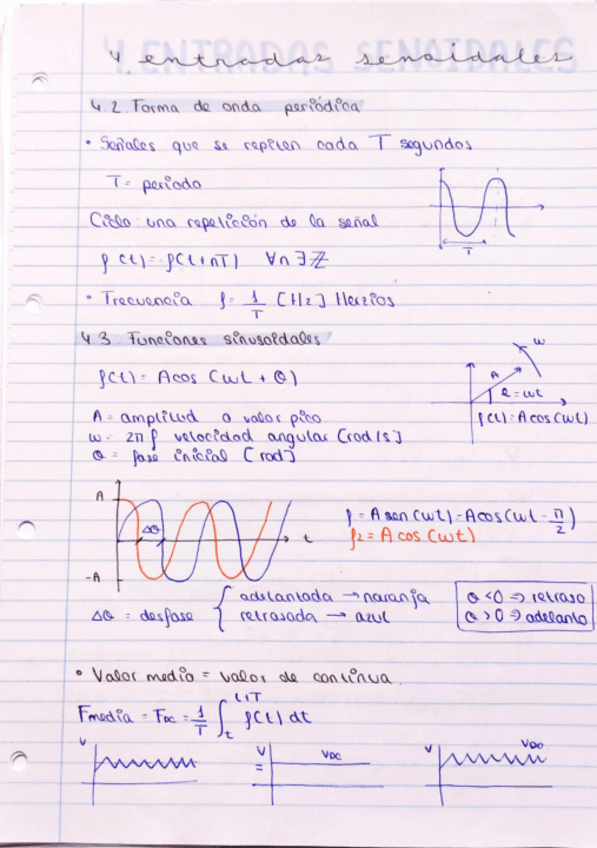 4. ENTRADAS SENOIDALES
4 entradas senoidales
4.2. Forma de onda periódica
• Señales que se repiten cada T segundos
T = periodo
Ciclo: una repetición de la señal
f(t) = f(t+nT) ∀n∃ℤ
T
• Frecuencia f = 1/T [Hz] Herzios
4.3. Funciones sinusoidales
f(t) = Acos (ωt + θ)
ω
A
θ = ωt
f(t) = A cos (ωt)
A = amplitud o valor pico
ω = 2π f velocidad angular [rad/s]
θ = fase inicial [rad]
A
Δθ
t
-A
f = A sen (ωt) = A cos (ωt - π/2)
f2 = A cos (ωt)
Δθ = desfase { adelantada → naranja
retrasada → azul
θ < 0 => retraso
θ > 0 => adelanto
• Valor medio = valor de continua.
Fmedia = FDC = 1/T ∫ t t+T f(t) dt
V
V
=
VDC
V
VDC